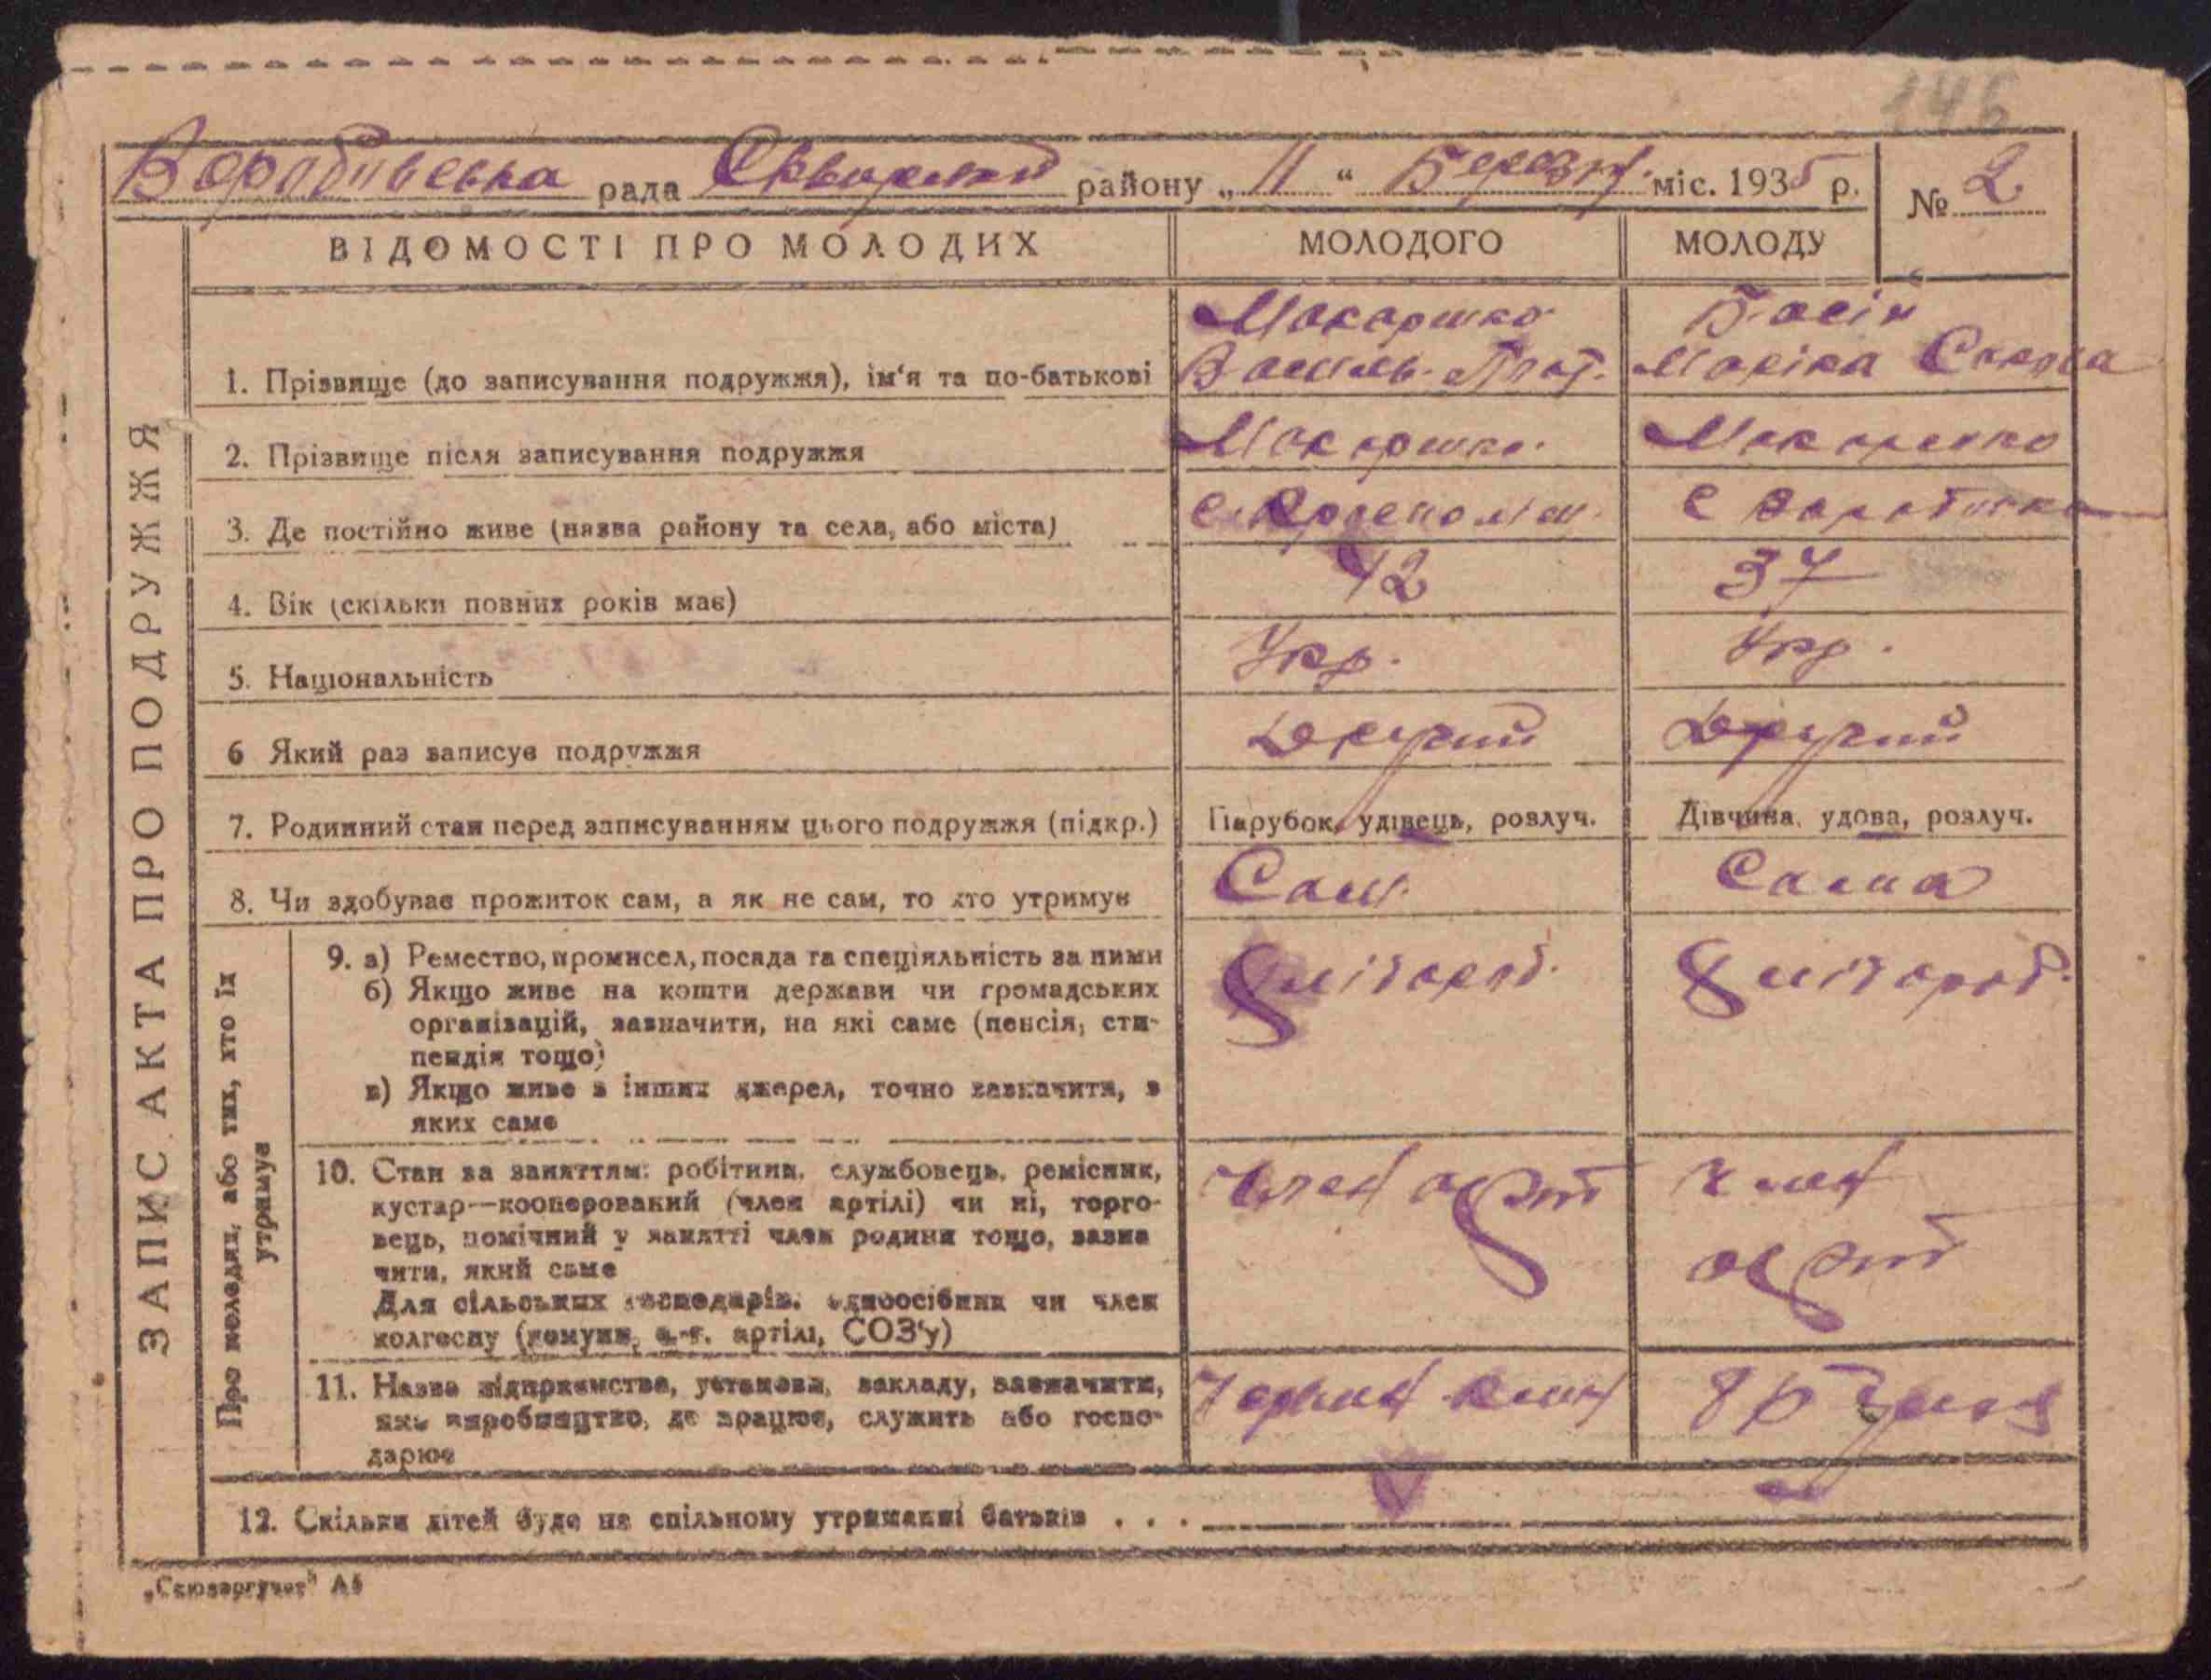 146
Воробиївська рада Сквирський району „ 11 “ Березня міс. 1935 р. № 2
ВІДОМОСТІ ПРО МОЛОДИХ МОЛОДОГО МОЛОДУ
Макаренко Басій
1. Прізвище (до записування подружжя), ім‘я та по-батькові Василь Плат.
2. Прізвище після записування подружжя Макаренко Макаренко
3. Де постійно живе (назва району та села, або міста)
4. Вік (скільки повних років має) 42 37
5. Національність Укр. Укр.
6 Який раз записує подружжя Другий Другий
7. Родинний стан перед записуванням цього подружжя (підкр.) Парубок, удівець, розлуч. Дівчина, удова, розлуч.
8. Чи здобуває прожиток сам, а як не сам, то хто утримує Сам Сама
ЗАПИС АКТА ПРО ПОДРУЖЖЯ
Про молодих, або тих, хто їх
утримує
9. а) Ремество, промисел, посада та спеціяльність за ними Хлібороб. Хлібороб.
б) Якщо живе на кошти держави чи громадських
організацій, зазначити, на які саме (пенсія, сти-
пендія тощо)
в) Якщо живе з інших джерел, точно зазначити, з
яких саме
10. Стан за заняттям: робітник, службовець, ремісник, Член артії Член
кустар—кооперований (член артілі) чи ні, торго-
вець, помічний у занятті член родини тощо, зазна
чити, який саме
Для сільських господарів: одноосібник чи член
колгоспу (комуни, с.-г. артілі, СОЗ‘у)
11. Назва підприємства, установи, закладу, зазначити,
яке виробництво, де працює, служить або госпо-
дарює
12. Скільки дітей буде на спільному утриманні батьків . . .